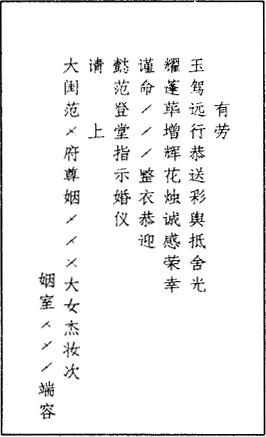 有劳
玉驾远行恭送彩舆抵舍光
耀蓬荜增辉花烛诚感荣幸
谨命×××整衣恭迎
懿范登堂指示婚仪
请 上
大闺范×府尊姻×××大女杰妆次
姻室×××端容